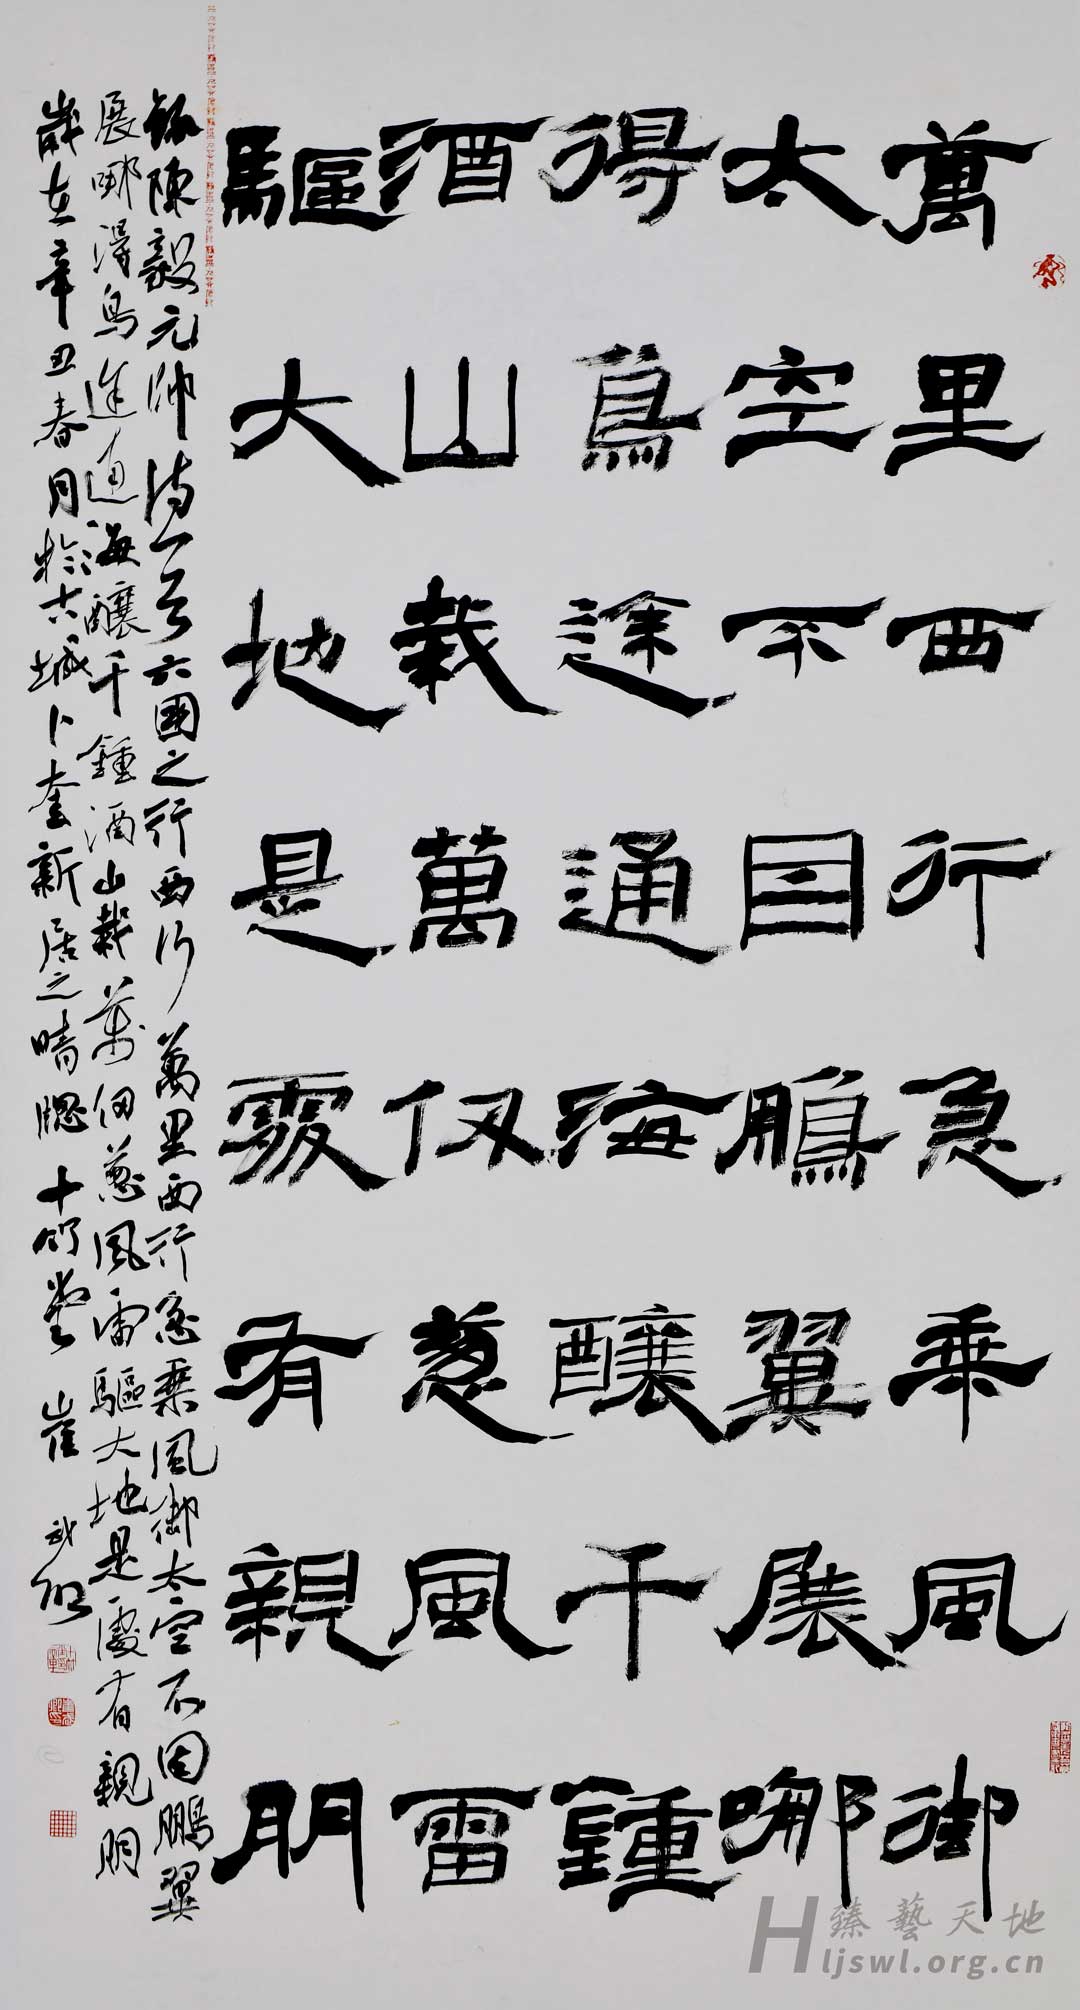 萬里西行急乘風御
太空不因鵬翼展哪
得鳥途通海釀千鍾
酒山栽萬仞葱風雷
驅大地是處有親朋
錄陳毅元帥詩一首六國之行西行萬里西行急乘風御太空不因鵬翼
展哪得鳥途通海釀千鍾酒山栽萬仞葱風雷驅大地是處有親朋
歲在辛丑春月於古城卜奎新居之晴牕十竹堂崔
臻藝天地
Hljswl.org.cn